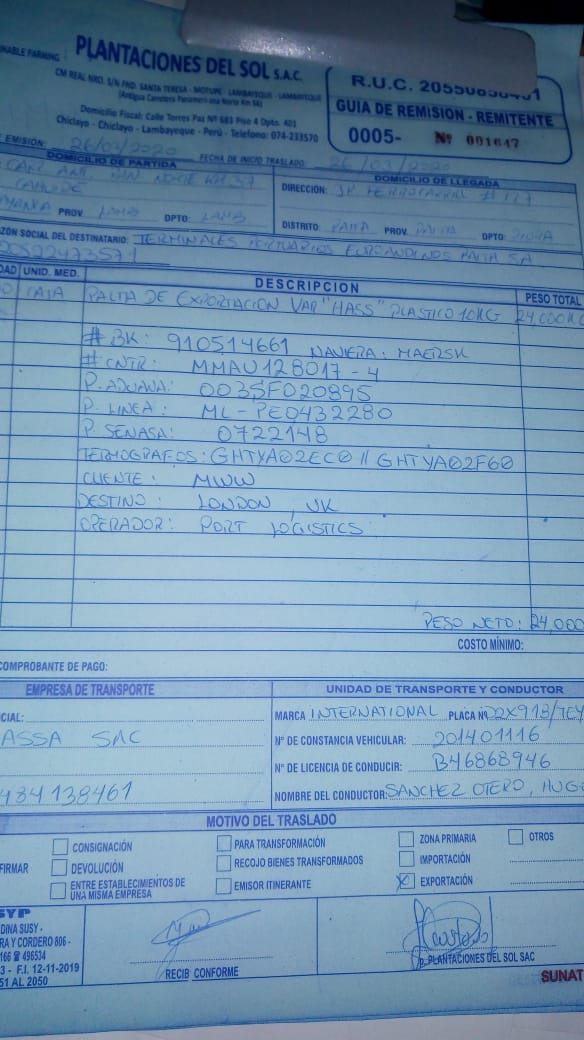 NABLE FARMING
PLANTACIONES DEL SOL S.A.C.
CM REAL NRO. S/N FND. SANTA TERESA - MOTUPE - LAMBAYEQUE - LAMBAYEQUE
(Antigua Carretera Panamericana Norte Km 56)
Domicilio Fiscal: Calle Torres Paz Nº 681 Piso 4 Dpto. 401
Chiclayo - Chiclayo - Lambayeque - Perú - Telefono: 074-233570
R.U.C.
GUIA DE REMISION - REMITENTE
0005- Nº 001647
EMISIÓN: 26/03/2020 FECHA DE INICIO TRASLADO: 26/03/2020
DOMICILIO DE PARTIDA
DOMICILIO DE LLEGADA
DIRECCIÓN:
PROV. LAMB DPTO: LAMB
DISTRITO: PAITA PROV. PAITA DPTO: PIURA
ZÓN SOCIAL DEL DESTINATARIO: TERMINALES PORTUARIOS EUROANDINOS PAITA SA
DAD UNID. MED. DESCRIPCION PESO TOTAL
CAJA PALTA DE EXPORTACION VAR "HASS" PLASTICO 10KG 24,000KG
# BK: 910514661 NAVIERA: MAERSK
# CNTR: MMAU128017-4
P. ADUANA: 003SF020895
P. LINEA: ML-PE0432280
P. SENASA: 0722148
TERMOGRAFOS: GHTYA02EC0 // GHTYA02F60
CLIENTE: MWW
DESTINO: LONDON, UK
OPERADOR: PORT LOGISTICS
PESO NETO: 24,000
COSTO MÍNIMO:
COMPROBANTE DE PAGO:
EMPRESA DE TRANSPORTE
UNIDAD DE TRANSPORTE Y CONDUCTOR
CIAL:
ASSA SAC
484138461
MARCA INTERNATIONAL PLACA Nº
Nº DE CONSTANCIA VEHICULAR: 201401116
Nº DE LICENCIA DE CONDUCIR: B46868946
NOMBRE DEL CONDUCTOR: SANCHEZ OTERO, HUGO
MOTIVO DEL TRASLADO
FIRMAR
CONSIGNACIÓN
DEVOLUCIÓN
ENTRE ESTABLECIMIENTOS DE
UNA MISMA EMPRESA
PARA TRANSFORMACIÓN
RECOJO BIENES TRANSFORMADOS
EMISOR ITINERANTE
ZONA PRIMARIA
IMPORTACIÓN
X EXPORTACIÓN
OTROS
SYP
DINA SUSY -
RA Y CORDERO 806 -
166 ☎ 496534
3 - F.I. 12-11-2019
51 AL 2050
RECIB CONFORME
p. PLANTACIONES DEL SOL SAC
SUNAT